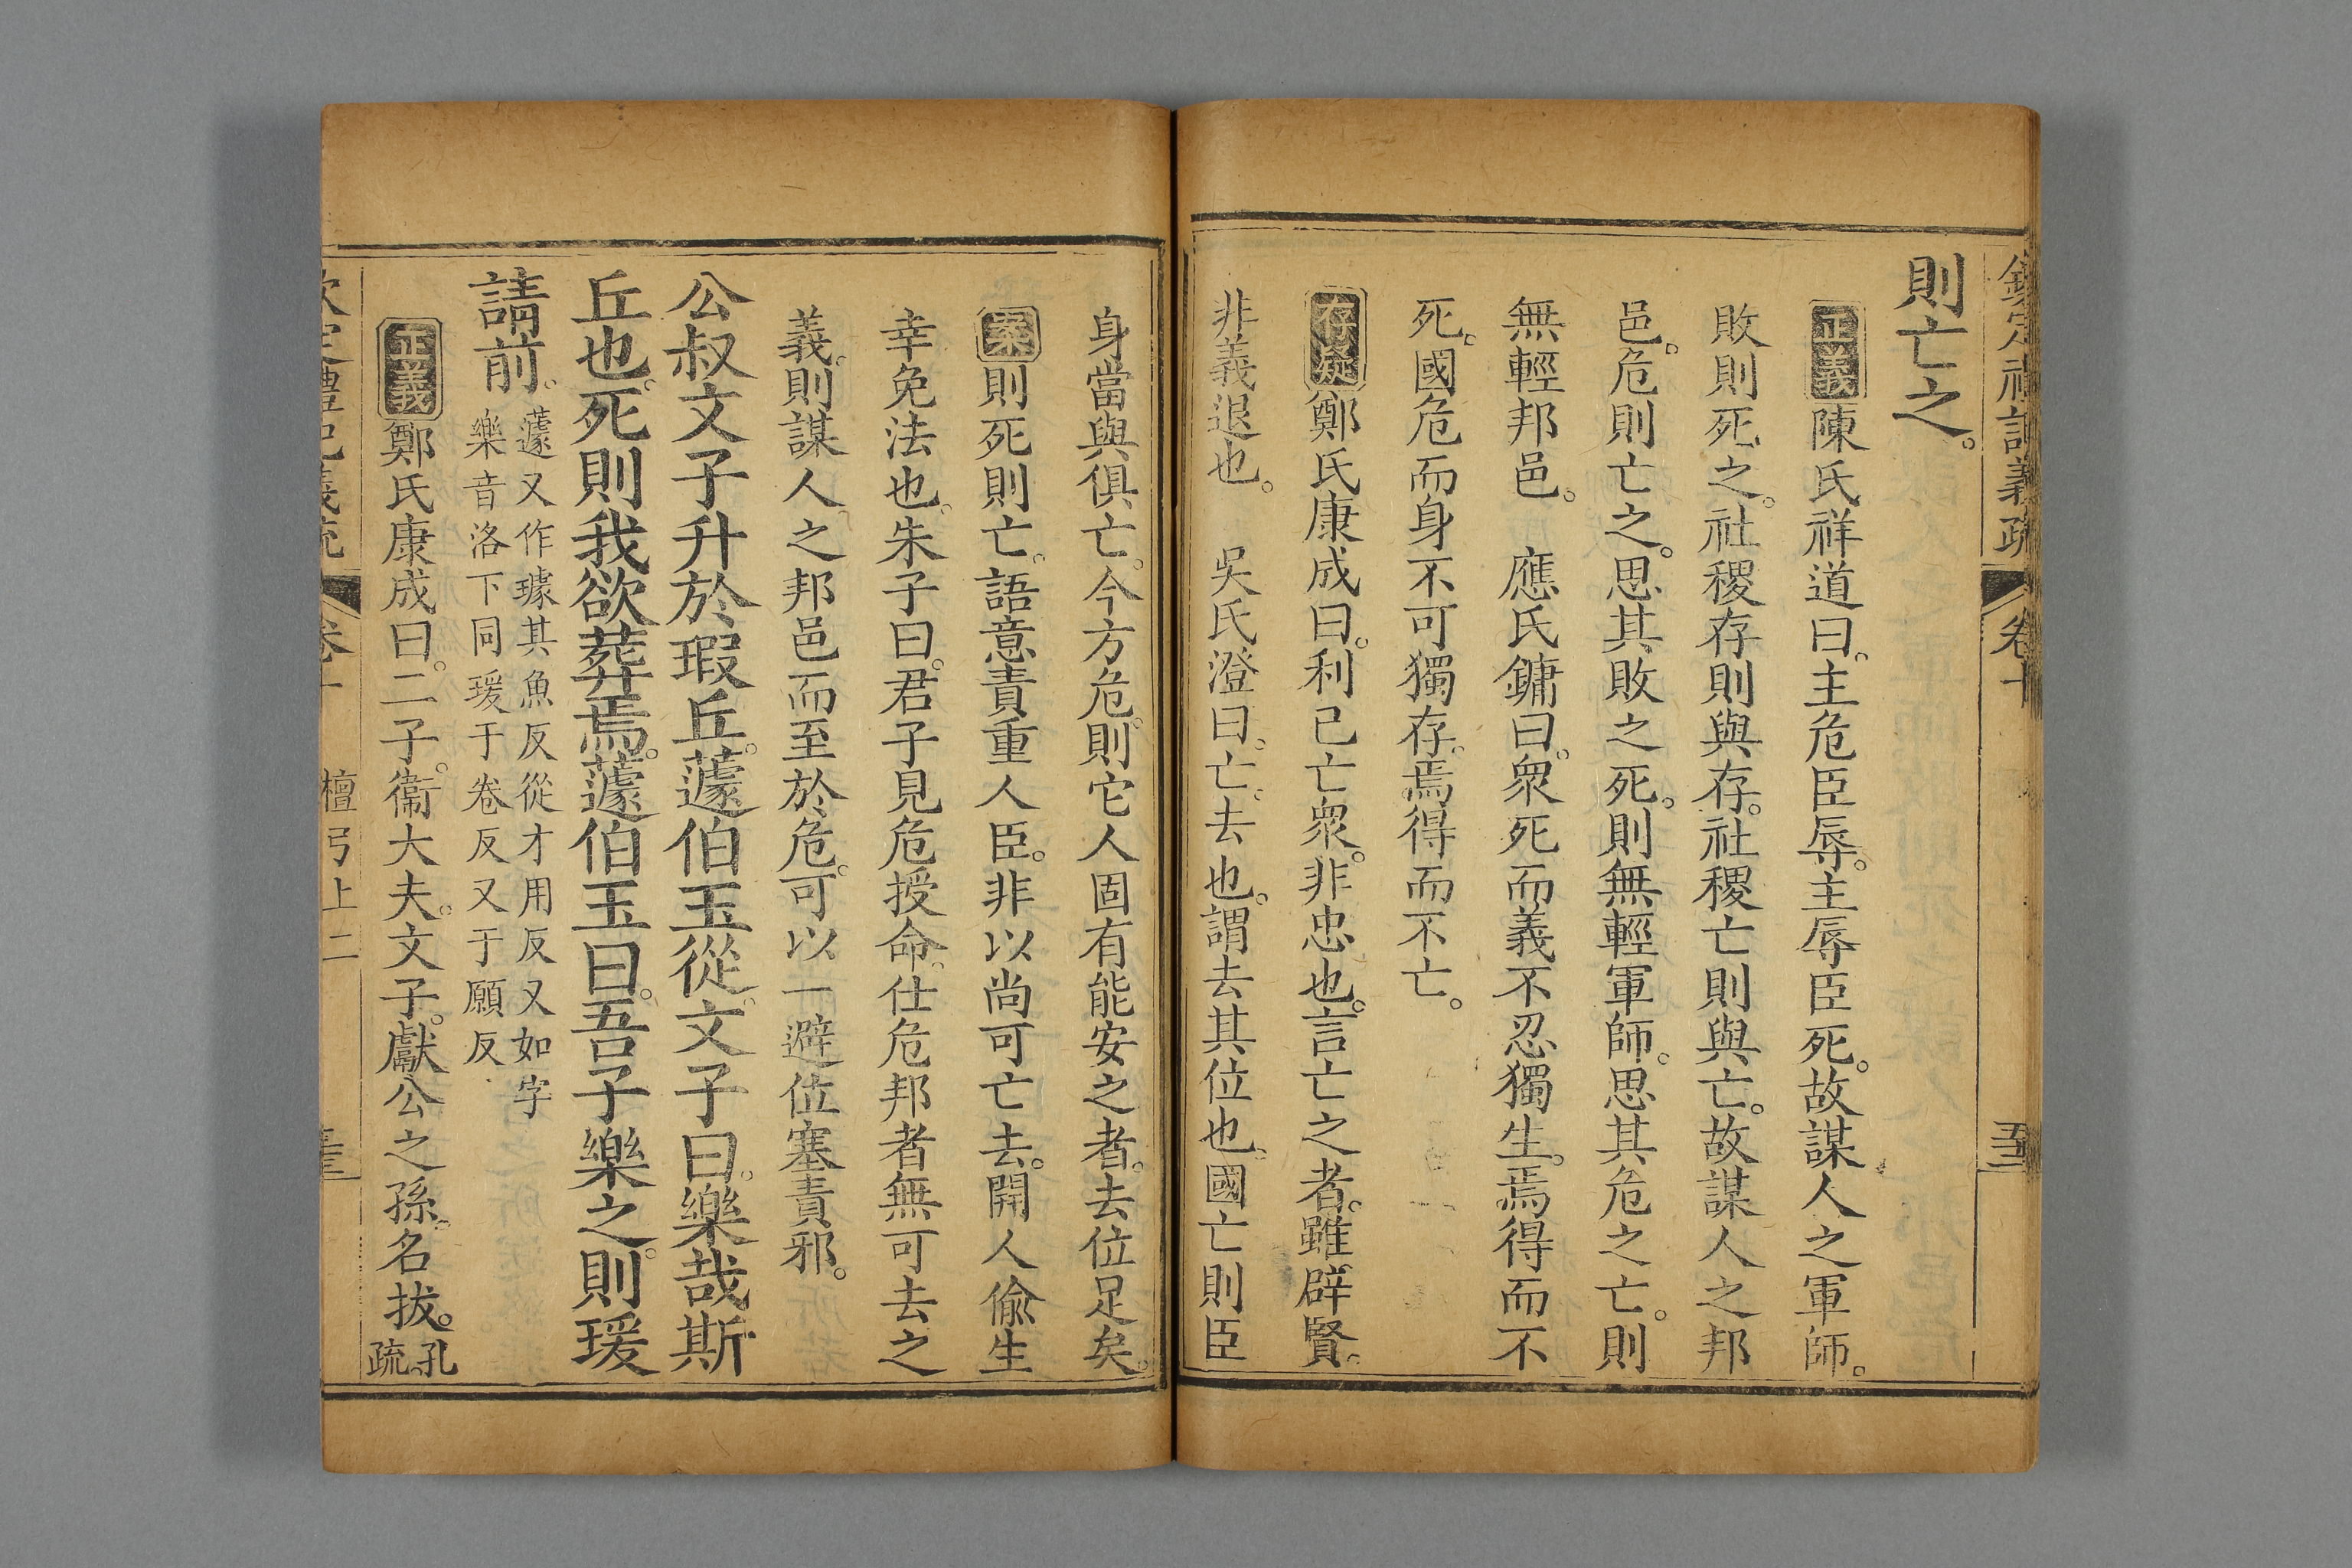 欽定禮記義疏 卷十
則亡之。
正義 陳氏祥道曰。主危臣辱。主辱臣死。故謀人之軍師。
敗則死之。社稷存則與存。社稷亡則與亡。故謀人之邦
邑。危則亡之。思其敗之死。則無輕軍師。思其危之亡。則
無輕邦邑。 應氏鏞曰。衆死而義不忍獨生。焉得而不
死。國危而身不可獨存。焉得而不亡。
存疑 鄭氏康成曰。利己亡衆。非忠也。言亡之者。雖辟賢。
非義退也。 吳氏澄曰。亡。去也。謂去其位也。國亡則臣
身當與俱亡。今方危。則它人固有能安之者。去位足矣。
案 則死則亡。語意責重人臣。非以尚可亡去。開人偷生
幸免法也。朱子曰。君子見危授命。仕危邦者無可去之
義。則謀人之邦邑而至於危。可以一避位塞責邪。
公叔文子升於瑕丘。蘧伯玉從。文子曰。樂哉斯
丘也。死則我欲葬焉。蘧伯玉曰。吾子樂之。則瑗
請前。
蘧又作璩其魚反從才用反又如字
樂音洛下同瑗于卷反又于願反
正義 鄭氏康成曰。二子。衞大夫。文子。獻公之孫。名拔。孔疏。
欽定禮記義疏 卷十 檀弓上二